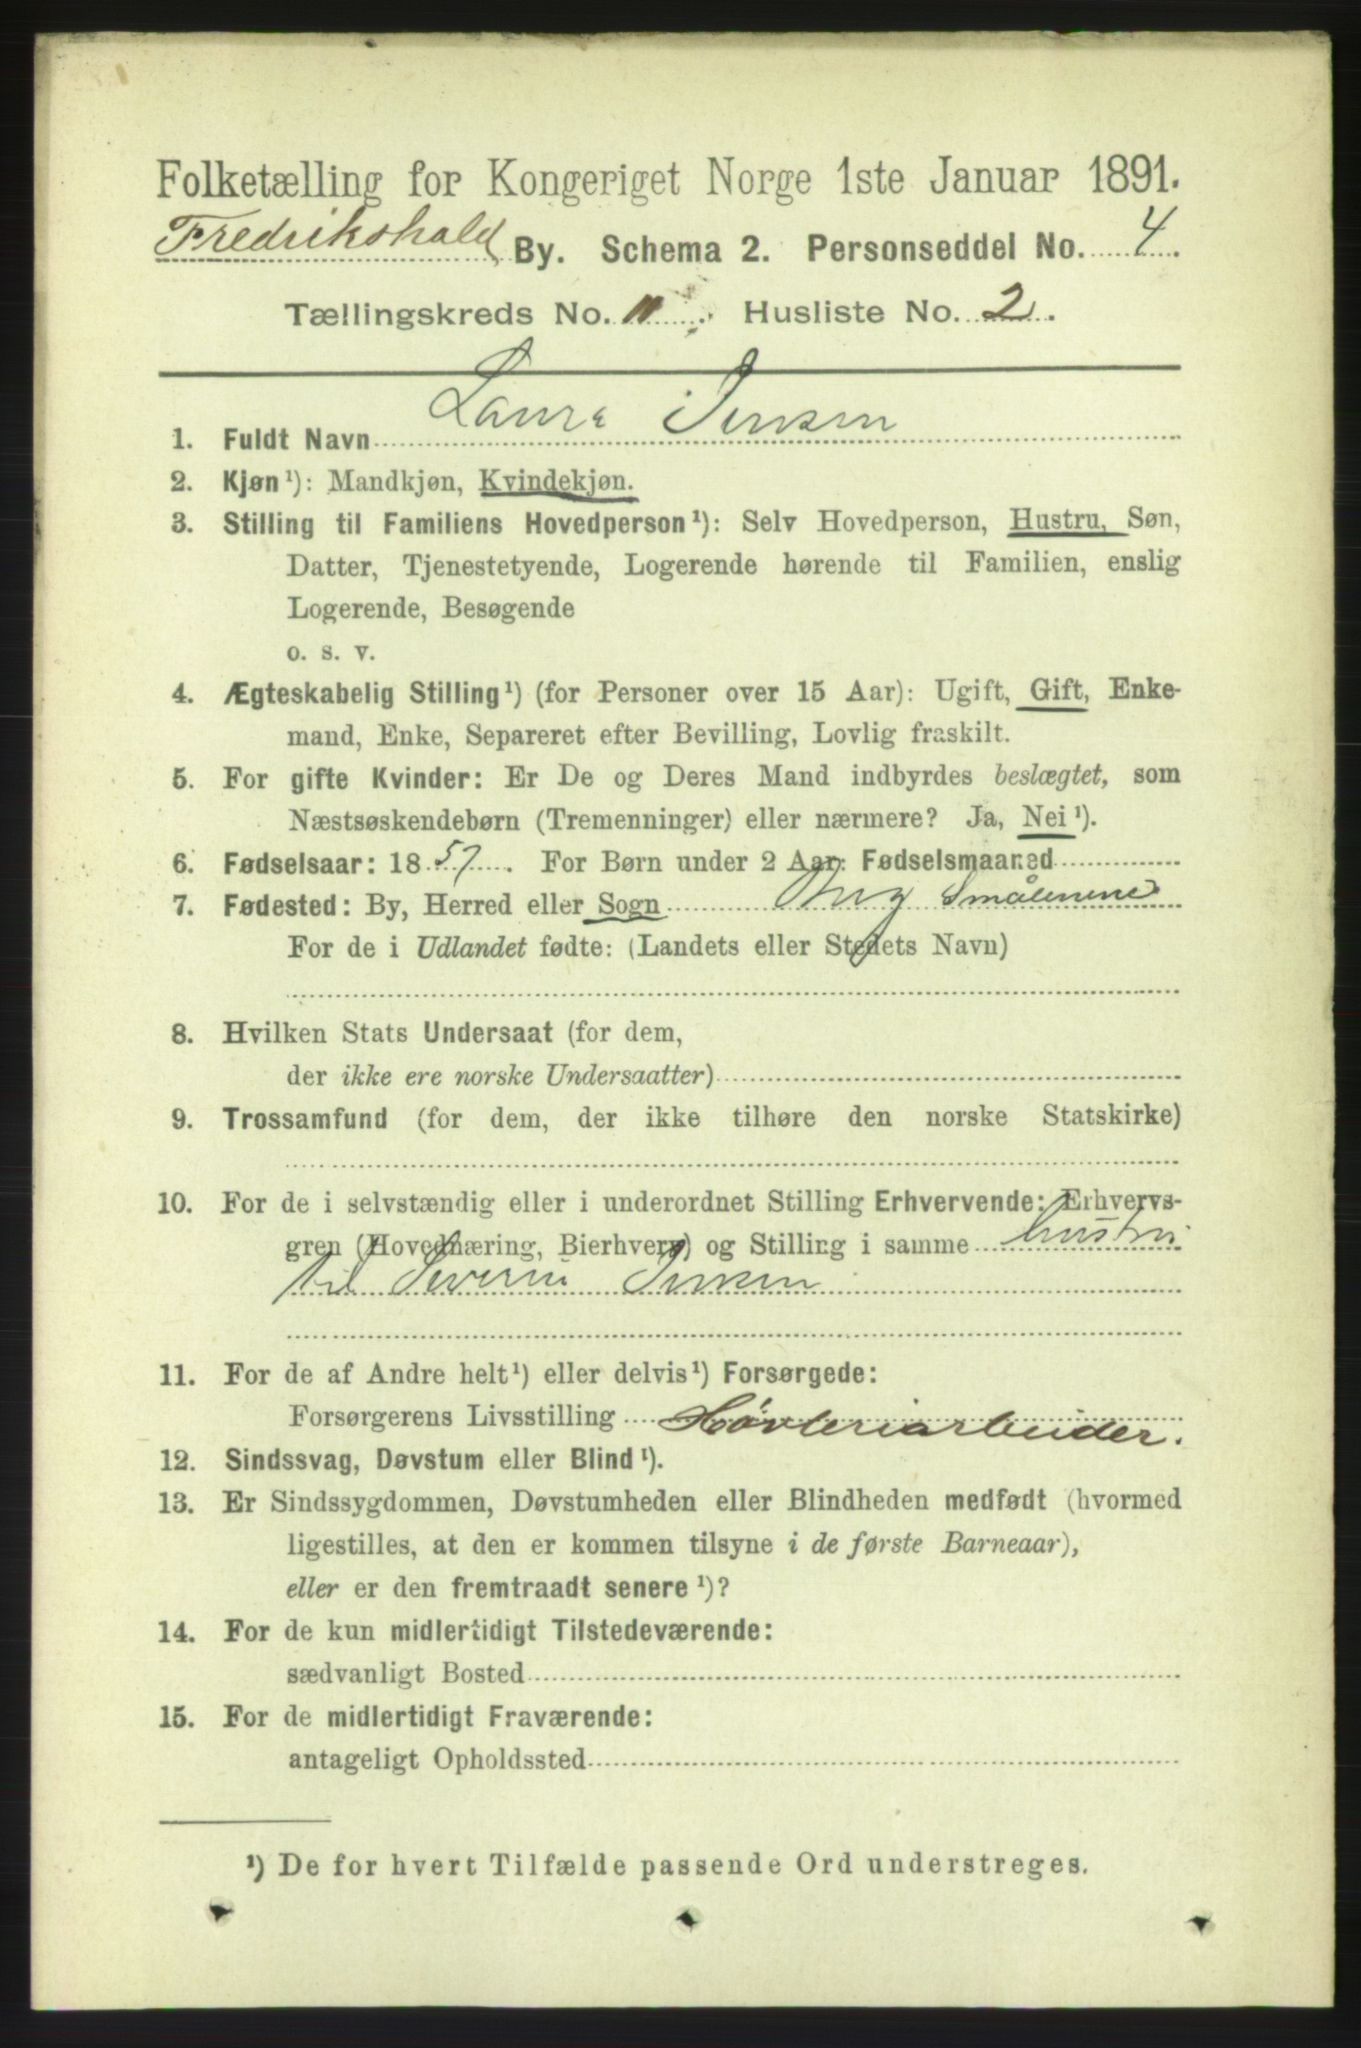 Folketælling for Kongeriget Norge 1ste Januar 1891.
Fredrikshald By. Schema 2. Personseddel No. 4.
Tællingskreds No. 11. Husliste No. 2.
1. Fuldt Navn Laura Jensen
2. Kjøn¹): Mandkjøn, Kvindekjøn.
3. Stilling til Familiens Hovedperson¹): Selv Hovedperson, Hustru, Søn,
Datter, Tjenestetyende, Logerende hørende til Familien, enslig
Logerende, Besøgende
o. s. v.
4. Ægteskabelig Stilling¹) (for Personer over 15 Aar): Ugift, Gift, Enke-
mand, Enke, Separeret efter Bevilling, Lovlig fraskilt.
5. For gifte Kvinder: Er De og Deres Mand indbyrdes beslægtet, som
Næstsøskendebørn (Tremenninger) eller nærmere? Ja, Nei¹).
6. Fødselsaar: 1857. For Børn under 2 Aar: Fødselsmaaned
7. Fødested: By, Herred eller Sogn Smålenene
For de i Udlandet fødte: (Landets eller Stedets Navn)
8. Hvilken Stats Undersaat (for dem,
der ikke ere norske Undersaatter)
9. Trossamfund (for dem, der ikke tilhøre den norske Statskirke)
10. For de i selvstændig eller i underordnet Stilling Erhvervende: Erhvervs-
gren (Hovednæring, Bierhverv) og Stilling i samme hustru
til Severin Jensen
11. For de af Andre helt¹) eller delvis¹) Forsørgede:
Forsørgerens Livsstilling Høvleriarbeider.
12. Sindssvag, Døvstum eller Blind¹).
13. Er Sindssygdommen, Døvstumheden eller Blindheden medfødt (hvormed
ligestilles, at den er kommen tilsyne i de første Barneaar),
eller er den fremtraadt senere¹)?
14. For de kun midlertidigt Tilstedeværende:
sædvanligt Bosted
15. For de midlertidigt Fraværende:
antageligt Opholdssted
¹) De for hvert Tilfælde passende Ord understreges.